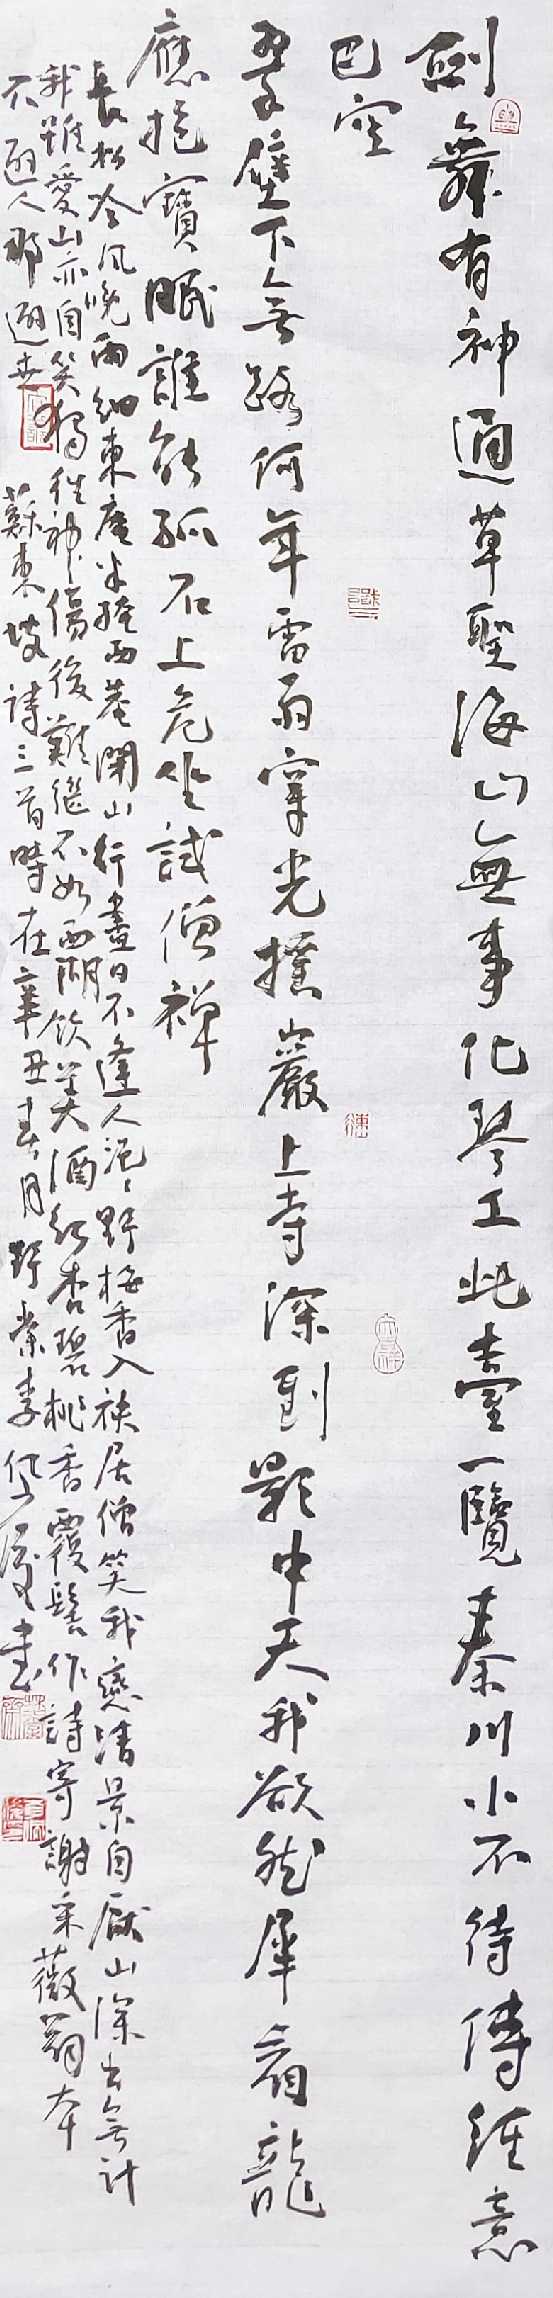 劍舞有神通草聖海山無事化琴工此臺一覽秦川小不待傳經意
已空
翠壁下無路何年雷雨穿光搖巖上寺深到影中天我欲然犀看龍
應抱寶眠誰能孤石上危坐試僧禪
長松吟風晚雨細東庵半掩西菴閉山行盡日不逢人浥浥野梅香入袂居僧笑我戀清景自厭山深出無計
我雖愛山亦自笑獨往神傷後難繼不如西湖飲美酒紅杏碧桃香覆髻作詩寄謝采薇翁本
不避人那避世
蘇東坡詩三首時在辛丑春月野叢李 書